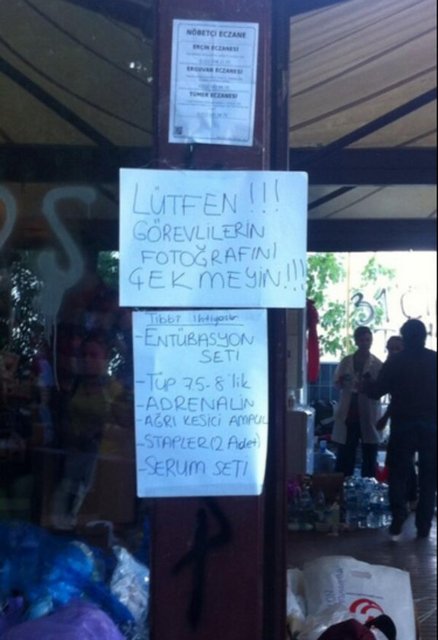 NÖBETÇİ ECZANE
ERÇİN ECZANESİ
ERGUVAN ECZANESİ
TÜMER ECZANESİ
LÜTFEN !!!
GÖREVLİLERİN
FOTOĞRAFINI
ÇEKMEYİN!!!
Tıbbi İhtiyaçlar
-ENTÜBASYON
SETİ
-TÜP 7.5-8'lik
-ADRENALİN
-AĞRI KESİCİ AMPUL
-STAPLER(2 Adet)
-SERUM SETİ